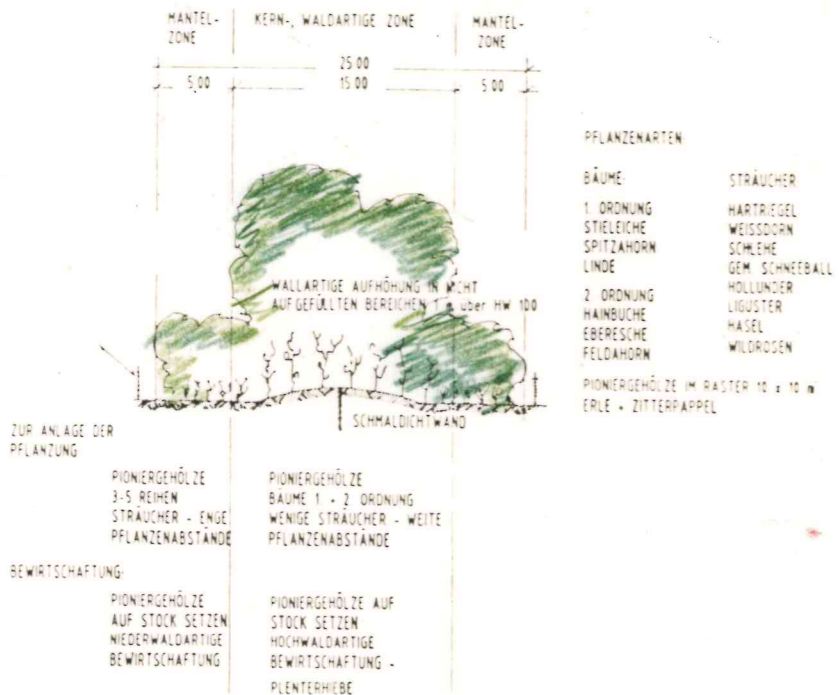 MANTEL-
ZONE
KERN-, WALDARTIGE ZONE
MANTEL-
ZONE
25.00
5.00
15.00
5.00
WALLARTIGE AUFHÖHUNG IN NICHT
AUFGEFÜLLTEN BEREICHEN 1 m über HW 100
SCHMALDICHTWAND
PFLANZENARTEN
BÄUME:
STRÄUCHER
1. ORDNUNG
STIELEICHE
SPITZAHORN
LINDE
2. ORDNUNG
HAINBUCHE
EBERESCHE
FELDAHORN
HARTRIEGEL
WEISSDORN
SCHLEHE
GEM. SCHNEEBALL
HOLLUNDER
LIGUSTER
HASEL
WILDROSEN
PIONIERGEHÖLZE IM RASTER 10 x 10 m
ERLE + ZITTERPAPPEL
ZUR ANLAGE DER
PFLANZUNG
PIONIERGEHÖLZE
3-5 REIHEN
STRÄUCHER - ENGE
PFLANZENABSTÄNDE
PIONIERGEHÖLZE
BÄUME 1 + 2 ORDNUNG
WENIGE STRÄUCHER - WEITE
PFLANZENABSTÄNDE
BEWIRTSCHAFTUNG:
PIONIERGEHÖLZE
AUF STOCK SETZEN
NIEDERWALDARTIGE
BEWIRTSCHAFTUNG
PIONIERGEHÖLZE AUF
STOCK SETZEN
HOCHWALDARTIGE
BEWIRTSCHAFTUNG -
PLENTERHIEBE